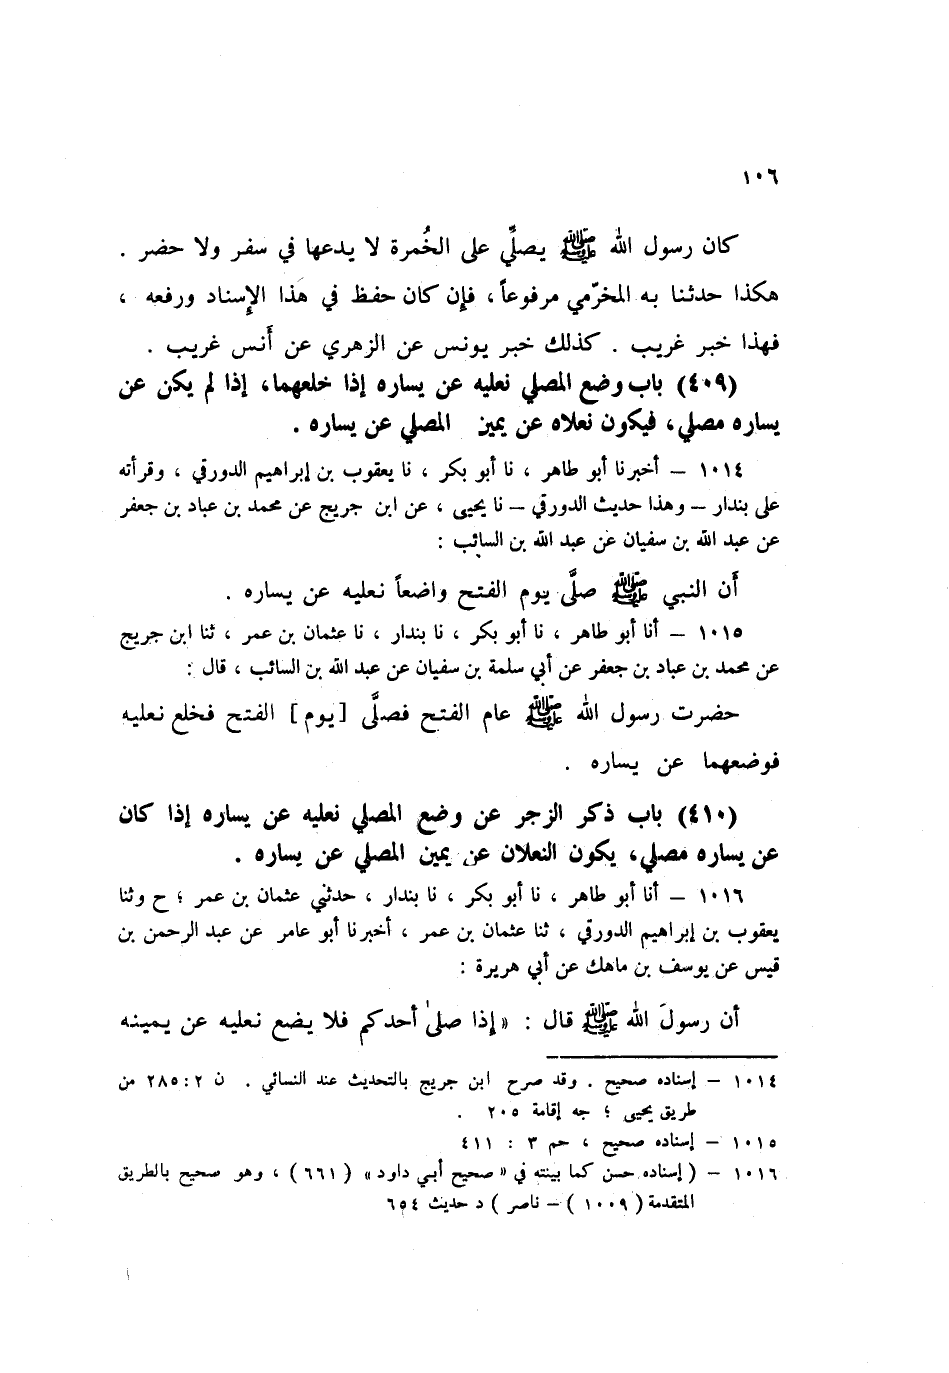 ١٠٦
كان رسول الله ﷺ يصلِّي على الخُمرة لا يدعها في سفر ولا حضر .
هكذا حدثنا به المخرّمي مرفوعاً ، فإن كان حفظ في هذا الإسناد ورفعه ،
فهذا خبر غريب . كذلك خبر يونس عن الزهري عن أنس غريب .
(٤٠٩) باب وضع المصلي نعليه عن يساره إذا خلعهما، إذا لم يكن عن
يساره مصلي، فيكون نعلاه عن يمين المصلي عن يساره .
١٠١٤ – أخبرنا أبو طاهر ، نا أبو بكر ، نا يعقوب بن إبراهيم الدورقي ، وقرأته
على بندار – وهذا حديث الدورقي – نا يحيى ، عن ابن جريج عن محمد بن عباد بن جعفر
عن عبد الله بن سفيان عن عبد الله بن السائب :
أَن النبي ﷺ صلَّى يوم الفتح واضعاً نعليه عن يساره .
١٠١٥ – أنا أبو طاهر ، نا أبو بكر ، نا بندار ، نا عثمان بن عمر ، ثنا ابن جريج
عن محمد بن عباد بن جعفر عن أبي سلمة بن سفيان عن عبد الله بن السائب ، قال :
حضرت رسول الله ﷺ عام الفتح فصلَّى [يوم] الفتح فخلع نعليه
فوضعهما عن يساره .
(٤١٠) باب ذكر الزجر عن وضع المصلي نعليه عن يساره إذا كان
عن يساره مصلي، يكون النعلان عن يمين المصلي عن يساره .
١٠١٦ – أنا أبو طاهر ، نا أبو بكر ، نا بندار ، حدثني عثمان بن عمر ؛ ح وثنا
يعقوب بن إبراهيم الدورقي ، ثنا عثمان بن عمر ، أخبرنا أبو عامر عن عبد الرحمن بن
قيس عن يوسف بن ماهك عن أبي هريرة :
أن رسولَ الله ﷺ قال : «إذا صلىٰ أحدكم فلا يضع نعليه عن يمينه
١٠١٤ – إسناده صحيح . وقد صرح ابن جريج بالتحديث عند النسائي . ن ٢ : ٢٨٥ من
طريق يحيى ؛ جه إقامة ٢٠٥ .
١٠١٥ – إسناده صحيح ، حم ٣ : ٤١١
١٠١٦ – ( إسناده حسن كما بينته في « صحيح أبي داود» ( ٦٦١ ) ، وهو صحيح بالطريق
المتقدمة ( ١٠٠٩ ) – ناصر ) د حديث ٦٥٤